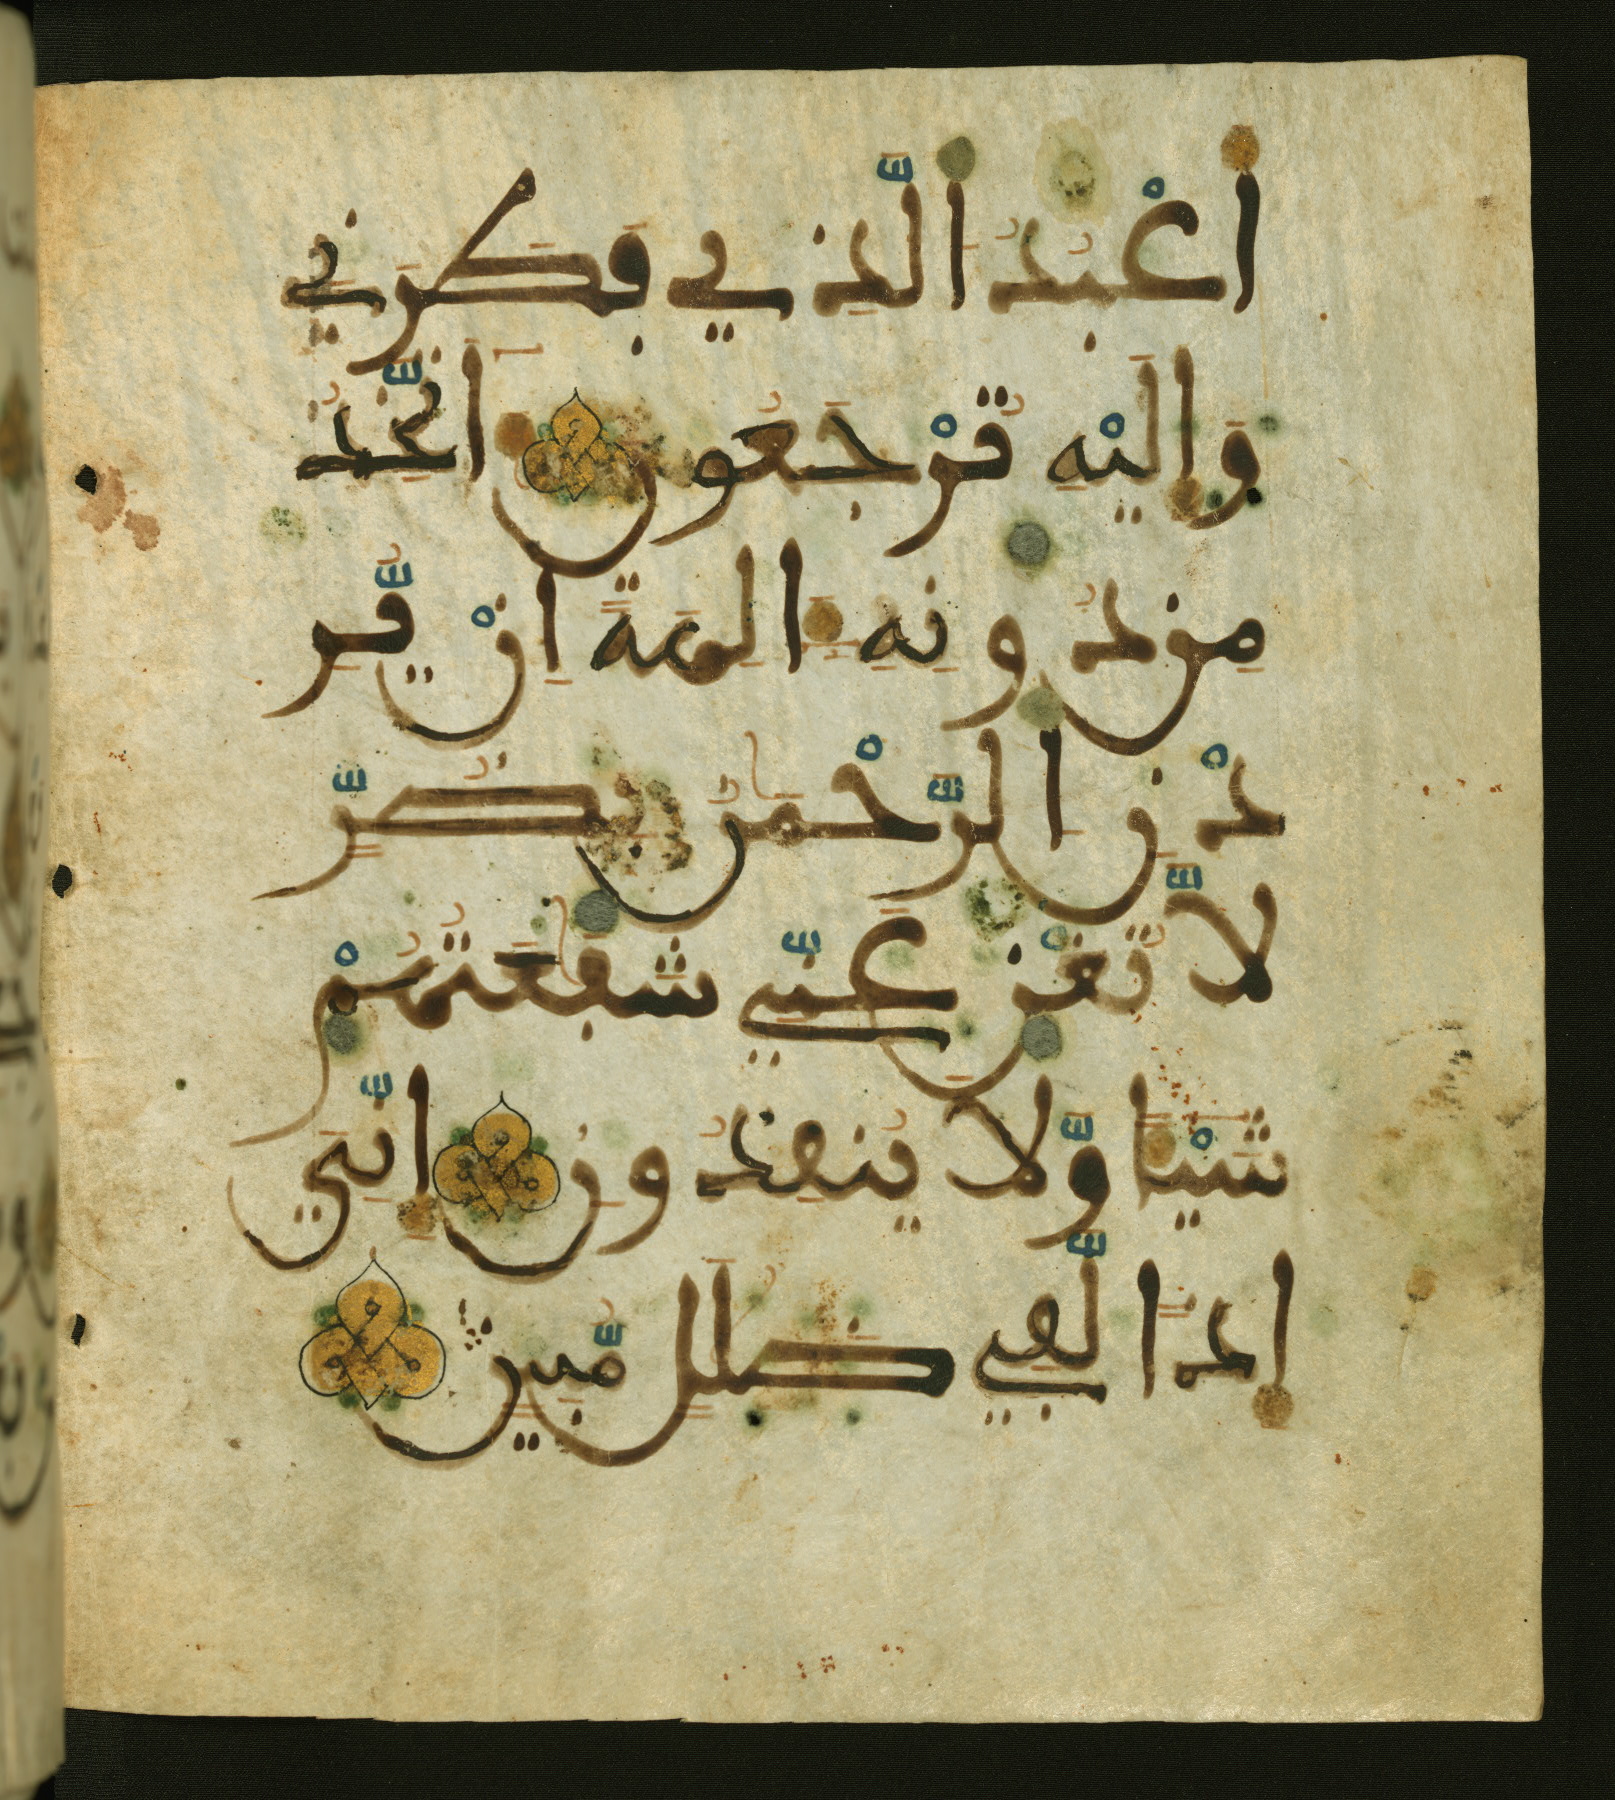 أَعْبُدُ الَّذِي فَطَرَنِي
وَإِلَيْهِ تُرْجَعُونَ ءَاتَّخِذُ
مِن دُونِهِ ءَالِهَةً إِنْ يُّرِ
دْنِ الرَّحْمَٰنُ بِضُرٍّ
لَّا تُغْنِ عَنِّي شَفَٰعَتُهُمْ
شَيْئًا وَّلَا يُنقِذُونِ إِنِّيَ
إِذًا لَّفِي ضَلَٰلٍ مُّبِينٍ